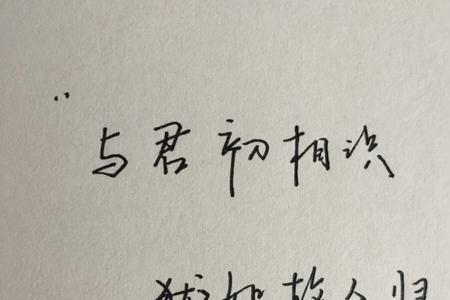 “与君初相识
犹如故人归